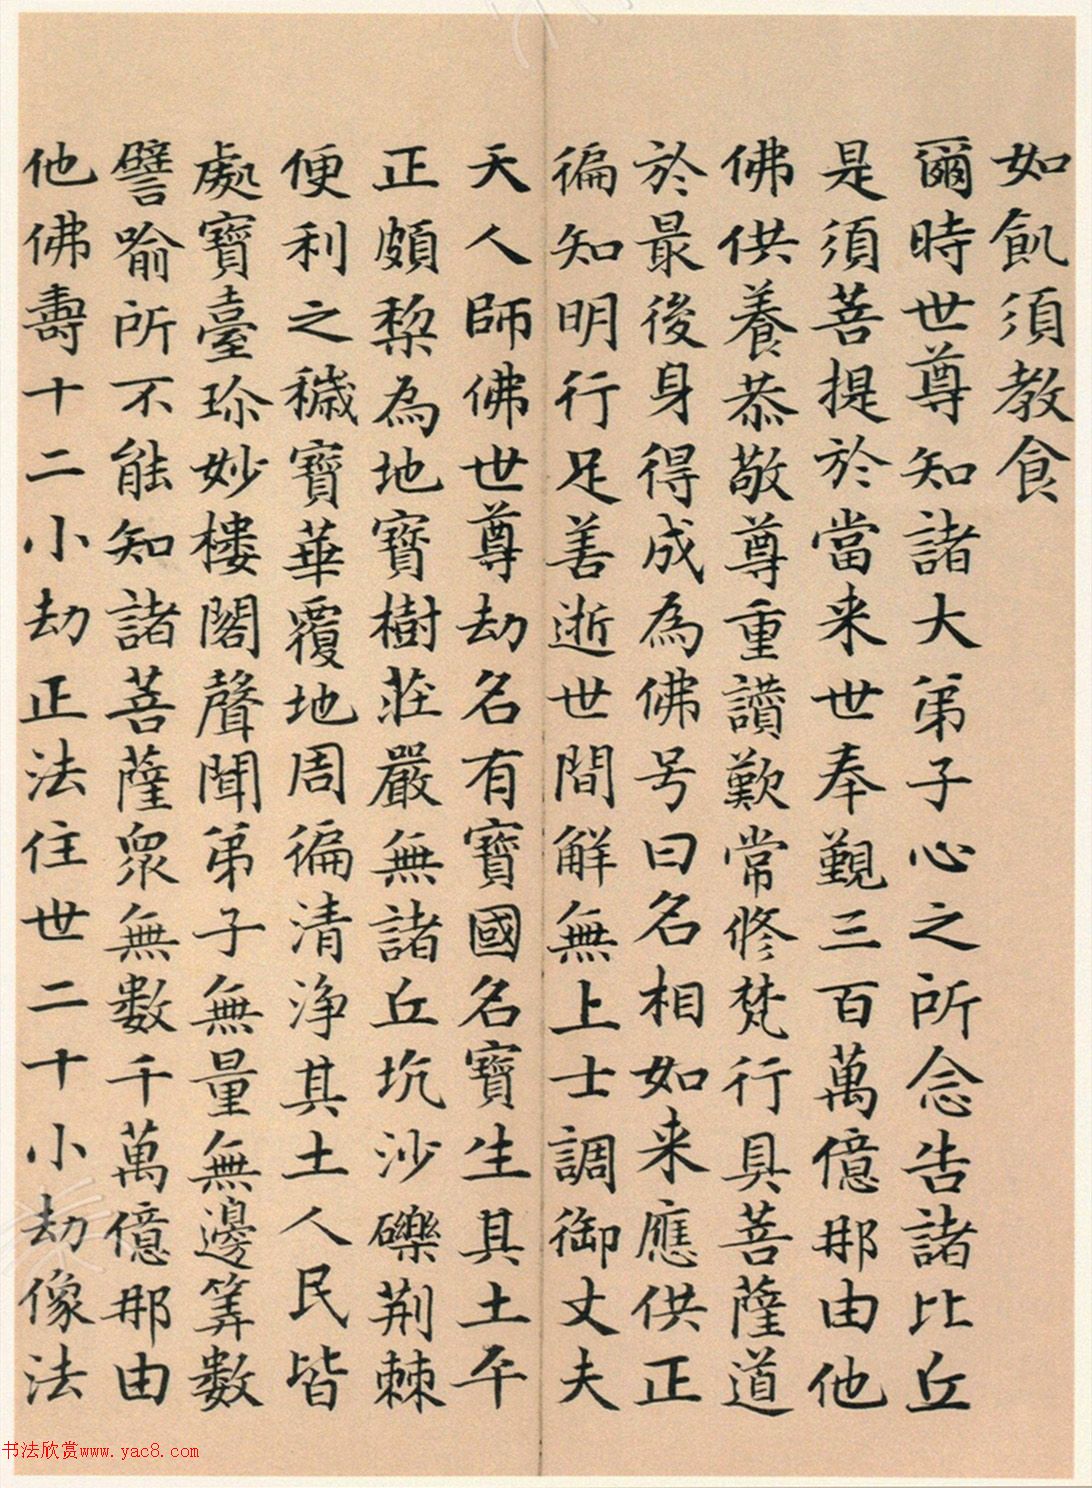 如飢須教食
爾時世尊知諸大弟子心之所念告諸比丘
是須菩提於當来世奉覲三百萬億那由他
佛供養恭敬尊重讃歎常修梵行具菩薩道
於最後身得成為佛号曰名相如来應供正
徧知明行足善逝世間解無上士調御丈夫
天人師佛世尊劫名有寶國名寶生其土平
正頗棃為地寶樹莊嚴無諸丘坑沙礫荆棘
便利之穢寶華覆地周徧清淨其土人民皆
處寶臺珍妙樓閣聲聞弟子無量無邊筭數
譬喻所不能知諸菩薩眾無数千萬億那由
他佛壽十二小劫正法住世二十小劫像法
书法欣赏www.yac8.com